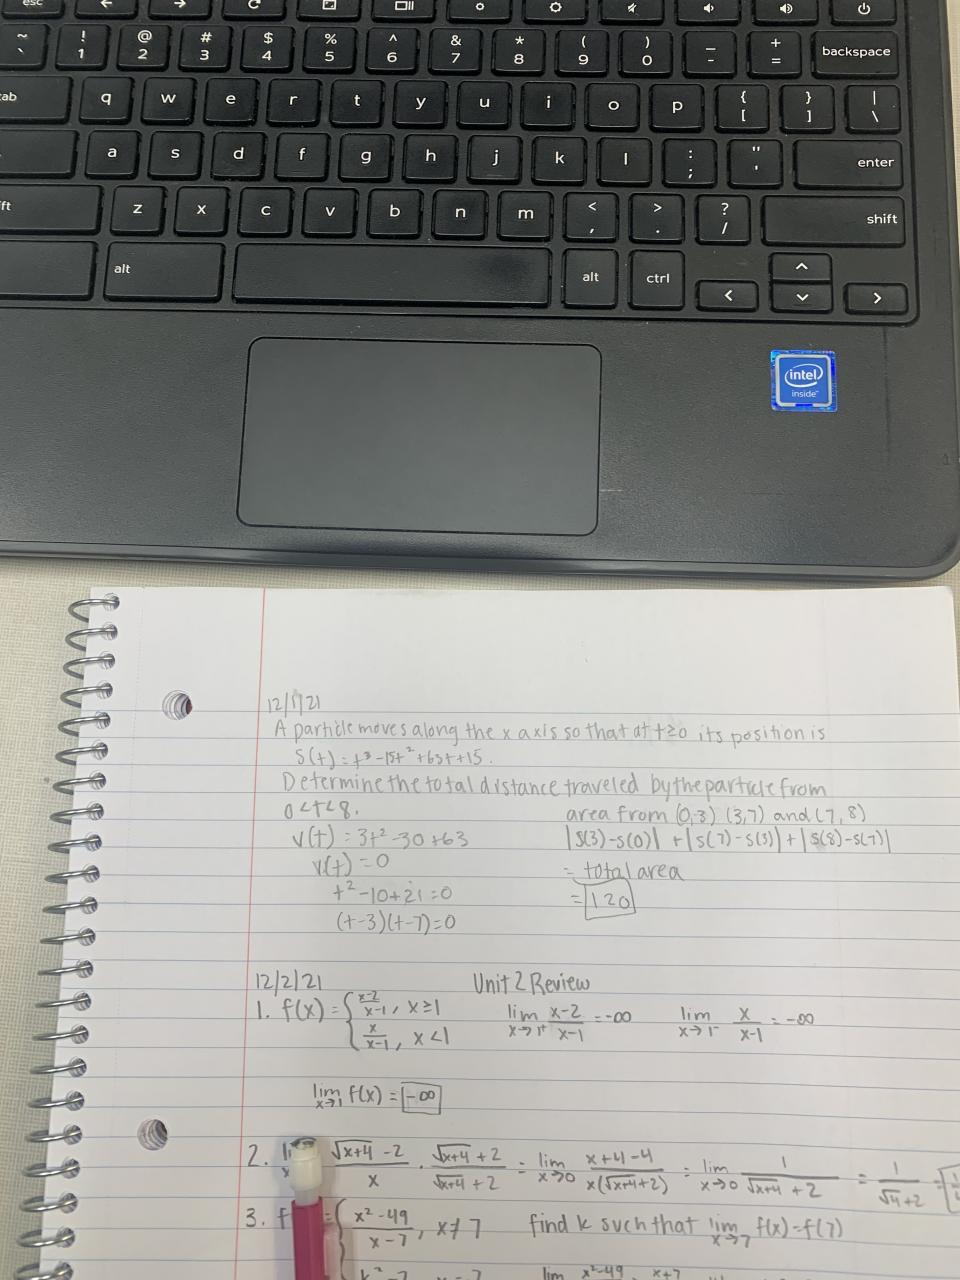 esc
~ ` ! 1 @ 2 # 3 $ 4 % 5 ^ 6 & 7 * 8 ( 9 ) 0 _ - + = backspace
tab q w e r t y u i o p { [ } ] | \
a s d f g h j k l : ; " ' enter
ft z x c v b n m < , > . ? / shift
alt alt ctrl < ^ v >
intel
inside
12/1/21
A particle moves along the x axis so that at t≥0 its position is
s(t) = t³-15t²+63t+15.
Determine the total distance traveled by the particle from
0<t<8.
area from (0,3) (3,7) and (7,8)
v(t) = 3t²-30+63
|s(3)-s(0)| + |s(7)-s(3)| + |s(8)-s(7)|
v(t) = 0
= total area
t²-10+21=0
= 120
(t-3)(t-7)=0
12/2/21 Unit 2 Review
1. f(x) = { x-2/x-1, x≥1 lim x→1⁺ x-2/x-1 = -∞ lim x→1⁻ x/x-1 = -∞
x/x-1, x<1
lim x→1 f(x) = -∞
2. √x+4 -2/x · √x+4 +2/√x+4 +2 = lim x→0 x+4-4/x(√x+4+2) = lim x→0 1/√x+4 +2 = 1/√4+2 =
3. f = { x²-49/x-7, x≠7 find k such that lim x→7 f(x)=f(7)
lim x²-49 x+7